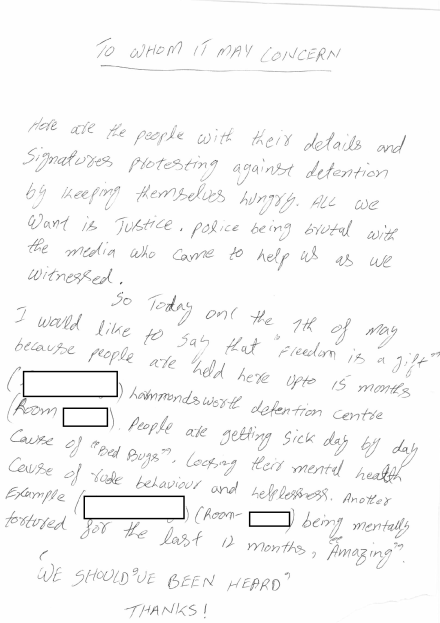 TO WHOM IT MAY CONCERN
Here are the people with their details and
Signatures protesting against detention
by keeping themselves hungry. All we
Want is Justice. police being brutal with
the media who came to help us as we
witnessed.
So Today on( the 7th of may
I would like to say that "Freedom is a gift"
because people are held here upto 15 months
( ) hammondsworth detention centre
(Room ). People are getting sick day by day
Cause of "Bed Bugs". Loosing their mental health
Cause of rude behaviour and helplessness. Another
Example ( ) (Room- ) being mentally
tortured for the last 12 months, "Amazing".
"WE SHOULD'VE BEEN HEARD"
THANKS!